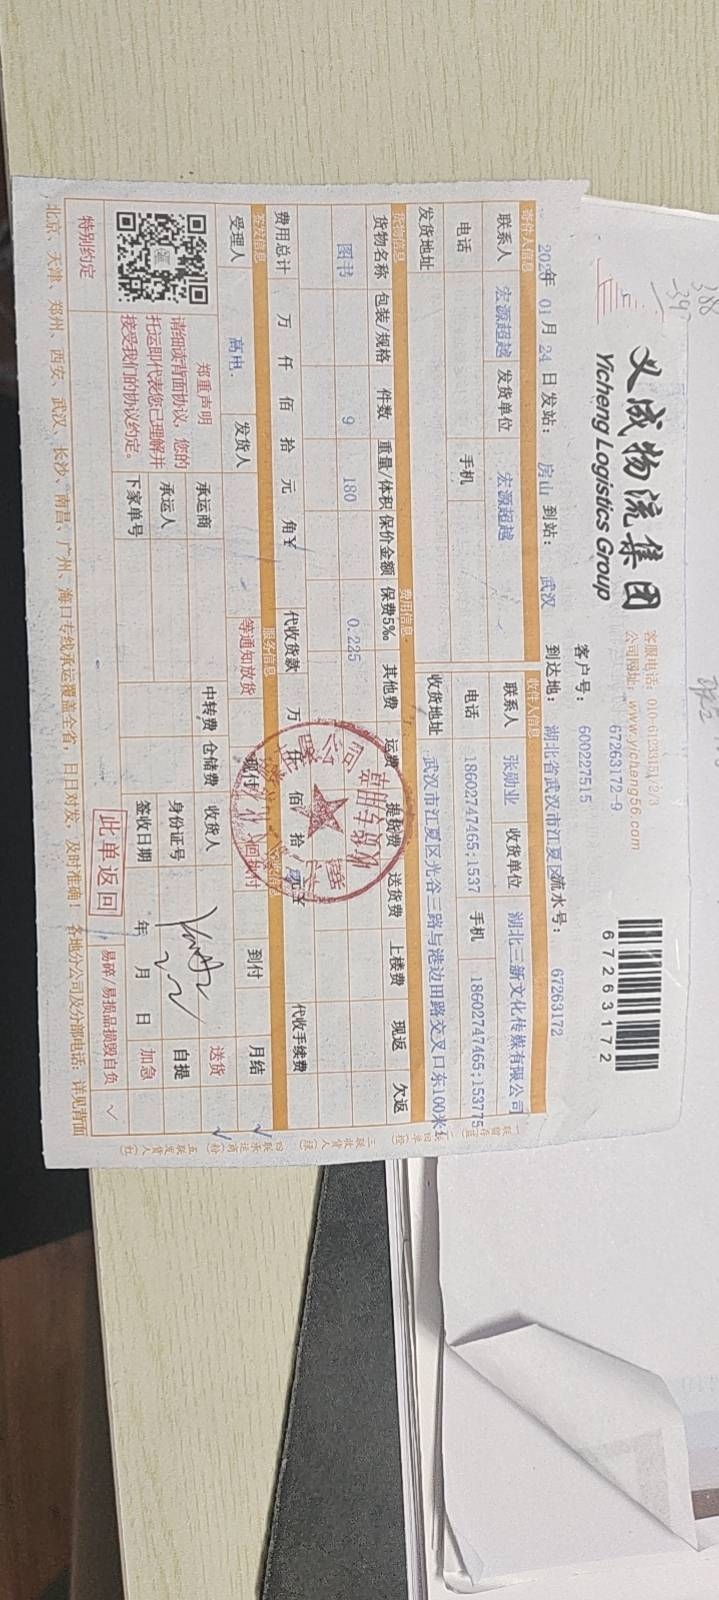 义成物流集团
Yicheng Logistics Group
客服电话：010-61233101/2/3
67263172-9
公司网址：www.yicheng56.com
67263172
客户号：600227515
01月24日 发站：房山 到站：武汉 到达地：湖北省武汉市江夏区 流水号：67263172
寄件人信息 收件人信息
联系人 宏源超越 发货单位 宏源超越 联系人 张勋业 收货单位 湖北三新文化传媒有限公司
电话 手机 电话 18602747465;1537 手机 18602747465;153775
发货地址 收货地址 武汉市江夏区光谷三路与港边田路交叉口东100米
货物信息 费用信息
货物名称 包装/规格 件数 重量/体积 保价金额 保费5‰ 其他费 运费 提货费 送货费 上楼费 现返 欠返
图书 9 180 0.225
费用总计 万 仟 佰 拾 元 角¥ 代收货款 万 仟 佰 拾 元¥ 代收手续费
签发信息 服务信息
受理人 高电. 发货人 等通知放货 现付 回单付 到付 月结 √
郑重声明
请细读背面协议，您的
托运即代表您已理解并
接受我们的协议约定。
承运商 中转费 仓储费 收货人 送货 √
承运人 身份证号 自提
下家单号 签收日期 年 月 日 加急
特别约定 此单返回 易碎/易损品损毁自负 √
北京、天津、郑州、西安、武汉、长沙、南昌、广州、海口专线承运覆盖全省，日日对发，及时准确！ 各地分公司及分部电话：详见背面